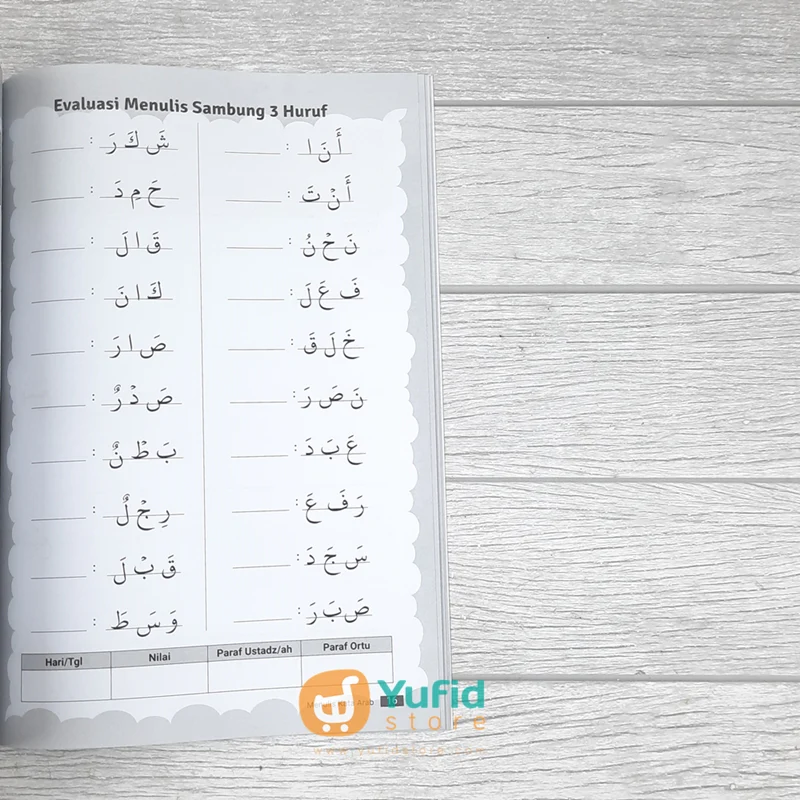 Evaluasi Menulis Sambung 3 Huruf
أَ نَ ا :
أَ نْ تَ :
نَ حْ نُ :
فَ عَ لَ :
خَ لَ قَ :
نَ صَ رَ :
عَ بَ دَ :
رَ فَ عَ :
سَ جَ دَ :
صَ بَ رَ :
شَ كَ رَ :
حَ مِ دَ :
قَ ا لَ :
كَ ا نَ :
صَ ا رَ :
صَ دْ رٌ :
بَ طْ نٌ :
رِ جْ لٌ :
قَ بْ لَ :
وَ سَ طَ :
Hari/Tgl Nilai Paraf Ustadz/ah Paraf Ortu
Yufid
store
www.yufidstore.com